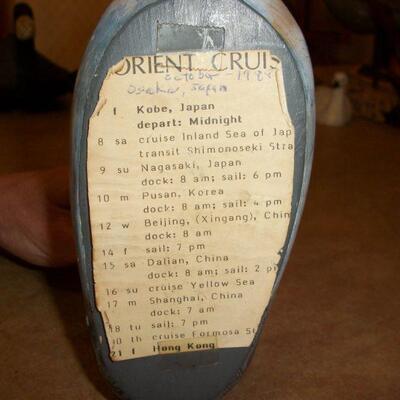 ORIENT CRUIS
october - 1988
Osaka, Japan
7 f Kobe, Japan
depart: Midnight
8 sa cruise Inland Sea of Jap
transit Shimonoseki Stra
9 su Nagasaki, Japan
dock: 8 am; sail: 6 pm
10 m Pusan, Korea
dock: 8 am; sail: 4 pm
12 w Beijing, (Xingang), Chin
dock: 8 am
14 f sail: 7 pm
15 sa Dalian, China
dock: 8 am; sail: 2 pm
16 su cruise Yellow Sea
17 m Shanghai, China
dock: 7 am
18 tu sail: 7 pm
20 th cruise Formosa St
21 f Hong Kong